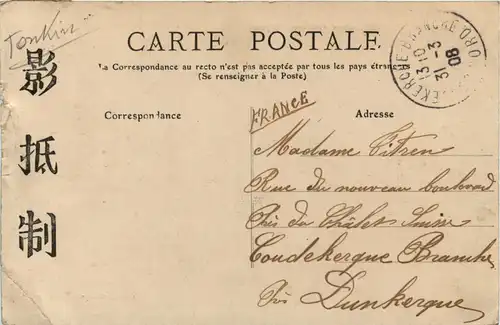 Tonkin
影抵制
CARTE POSTALE
La Correspondance au recto n'est pas acceptée par tous les pays étrangers
(Se renseigner à la Poste)
COUDEKERQUE-BRANCHE NORD
13 10
3 -3
08
FRANCE
Correspondance
Adresse
Madame Vitren
Rue du nouveau boulevard
Près du Châlet Suisse
Coudekerque Branche
Près Dunkerque